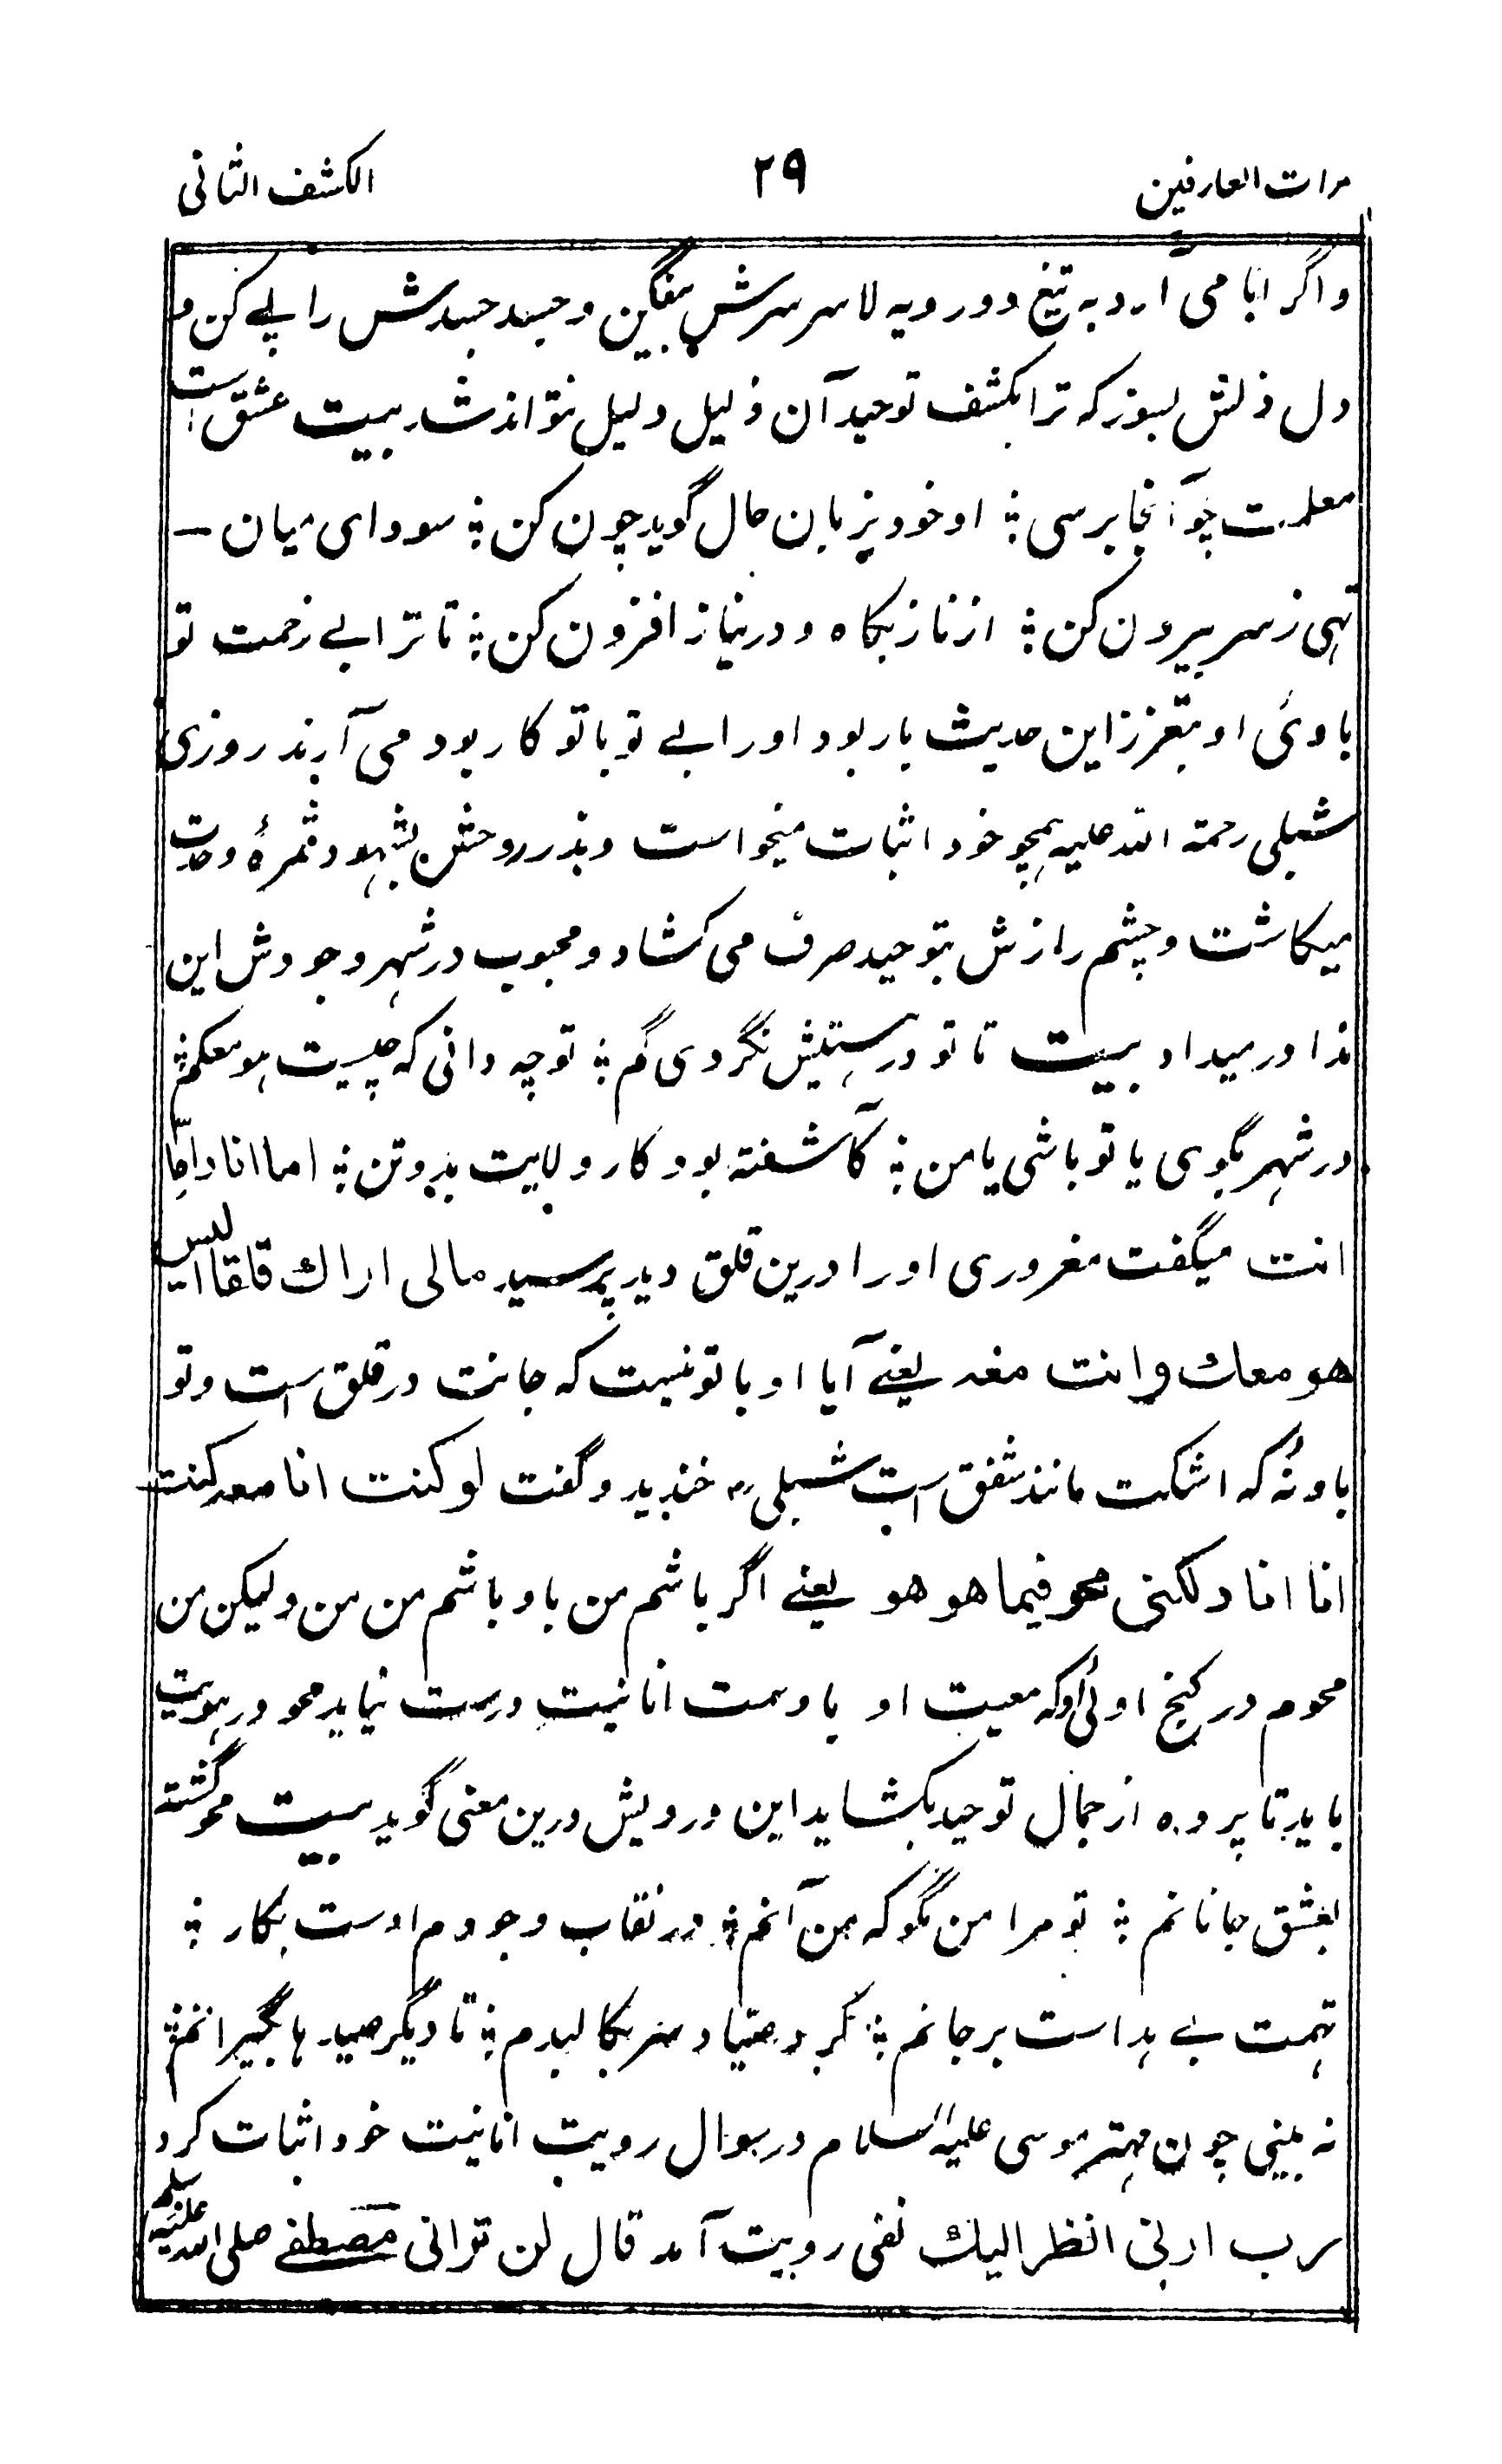 مرات العارفین ٢٩ الکشف الثانی
و اگر ابا می آرد به تیغ دو رویه لا سر سرش بیفگن و جسد جسدش را پلے کن و
دل ذلش بسوز که ترا بکشف توحید آن ذلیل دلیل نتواند شد بیت عشق است
معلمت چو آنجا برسی ؛ او خود بزبان حال گوید چون کن ؛ سودای میان ـ
تہی ز سر بیرون کن ؛ از ناز بکاه و در نیاز افزون کن ؛ تا ترا بے زحمت تو
با وئی او بتعزز این حدیث بار بود او را بے تو با تو کار بود می آرند روزی
شبلی رحمة الله علیه ہمچو خود اثبات میخواست و بذر روحش بشہود ثمرۂ وحدت
میکاشت و چشم رازش بتوحید صرف می کشاد و محبوب در شہر وجودش این
ندا در میداد بیت تا تو در ہستیش نگردی گم ؛ تو چه دانی که چیست ہو معکم ؛
در شہر بگوی یا تو باشی یا من ؛ کآشفته بود کار ولایت بدو تن ؛ اما انا و اما
انت میگفت مغروری او را درین قلق دید پرسید مالی اراك قلقا الیس
هو معك وانت معه یعنے آیا او با تو نیست که جانت در قلق است و تو
با ونۂ که اشکت مانند شفق است شبلی رح خندید و گفت لو کنت انا معه کنت
انا انا ولکنی محو فیما هو هو یعنے اگر باشم من با و باشم من من ولیکن من
محوم در کنج اوئی او که معیت او با وسمت انانیت درست نیاید محو در ہویت
باید تا پرده از جمال توحید بکشاید این درویش درین معنی گوید بیت محو گشته
بعشق جانانم ؛ تو مرا من مگو که من آنم ؛ در نقاب وجودم اوست بکار ؛
تہمت بے ہداست بر جانم ؛ کرد صیاد سر بکالبدم ؛ تا دیگر صید ہا بگیرانم ؛
نه بینی چون مہتر موسی علیه السلام در سوال رویت انانیت خود اثبات کرد
رب ارنی انظر الیك نفی رویت آمد قال لن ترانی مصطفے صلی الله علیه وسلم